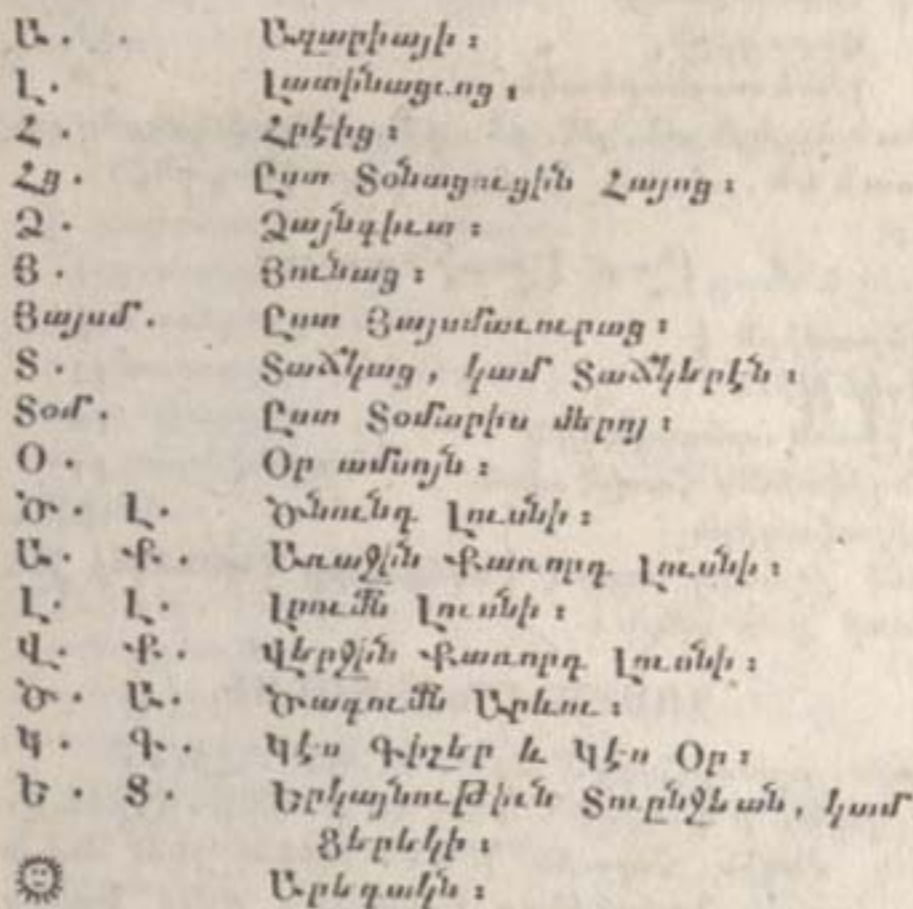 Ա. . Ազարիայի։
Լ. Լատինացւոց։
Հ. Հրէից։
Հց. Ըստ Տօնացուցին Հայոց։
Ձ. Ձայնգիւտ։
Յ. Յունաց։
Յայսմ. Ըստ Յայսմաւուրաց։
Տ. Տաճկաց, կամ Տաճկերէն։
Տօմ. Ըստ Տօմարիս մերոյ։
Օ. Օր ամսոյն։
Ծ. Լ. Ծնունդ Լուսնի։
Ա. Ք. Առաջին Քառորդ Լուսնի։
Լ. Լ. Լրումն Լուսնի։
Վ. Ք. Վերջին Քառորդ Լուսնի։
Ծ. Ա. Ծագումն Արևու։
Կ. Գ. Կէս Գիշեր և Կէս Օր։
Ե. Տ. Երկայնութիւն Տուընջևան, կամ
Ցերեկի։
Արեգակն։